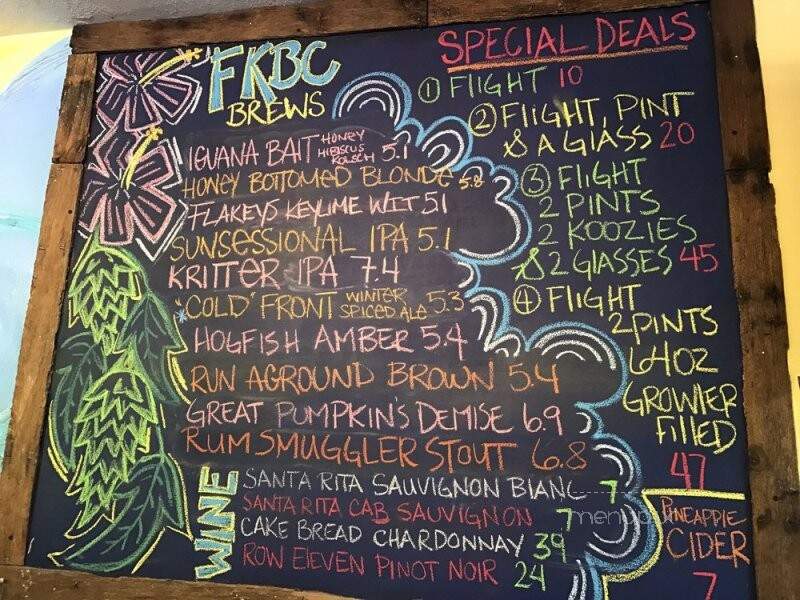 FKBC
BREWS
IGUANA BAIT HONEY HIBISCUS KOLSCH 5.1
HONEY BOTTOMED BLONDE 5.8
FLAKEYS KEYLIME WIT 51
SUNSESSIONAL IPA 5.1
KRITTER IPA 7.4
"COLD" FRONT WINTER SPICED ALE 5.3
HOGFISH AMBER 5.4
RUN AGROUND BROWN 5.4
GREAT PUMPKIN'S DEMISE 6.9
RUM SMUGGLER STOUT 6.8
WINE
SANTA RITA SAUVIGNON BLANC 7
SANTA RITA CAB SAUVIGNON 7
CAKE BREAD CHARDONNAY 39
ROW ELEVEN PINOT NOIR 24
SPECIAL DEALS
1 FLIGHT 10
2 FLIGHT, PINT
& A GLASS 20
3 FLIGHT
2 PINTS
2 KOOZIES
& 2 GLASSES 45
4 FLIGHT
2 PINTS
64OZ
GROWLER
FILLED
47
PINEAPPLE
CIDER
7